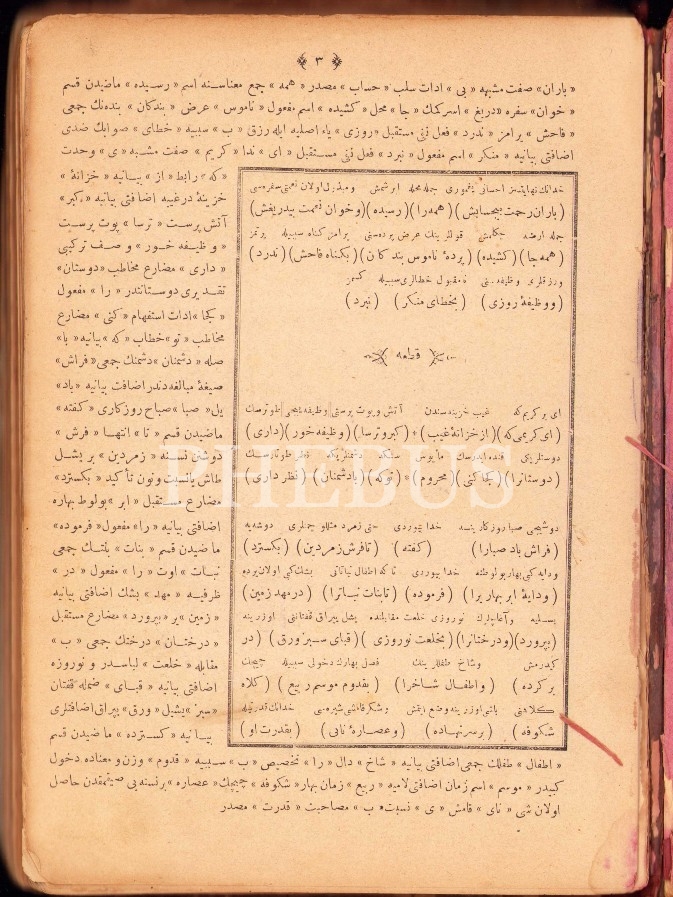 ﴿ ٣ ﴾
« باران » صفت مشبهه « بی » ادات سلب « حساب » مصدر « همه » جمع معناسنه اسم « رسیده » ماضیدن قسم
« خوان » سفره « دریغ » اسرکمك « جا » محل « کشیده » اسم مفعول « ناموس » عرض « بندکان » بنده‌نك جمعی
« فاحش » پرامز « ندرد » فعل نفی مستقبل « روزی » یاء اصلیه ایله رزق « ب » سببیه « خطای » صوابك ضدی
اضافتی بیانیه « منکر » اسم مفعول « نبرد » فعل نفی مستقبل « ای » ندا « کریم » صفت مشبهه « ی » وحدت
« که » رابط « از » بیانیه « خزانهٔ »
خزینهٔ درغیبه اضافتی بیانیه « کبر »
آتش پرست « ترسا » پوت پرست
« وظیفه خور » وصف ترکیبی
« داری » مضارع مخاطب « دوستان »
تقدیری دوستانندر « را » مفعول
« کجا » ادات استفهام « کنی » مضارع
مخاطب « تو » خطاب « که » بیانیه « با »
صله « دشمنان » دشمنك جمعی « فراش »
صیغهٔ مبالغه‌دندر اضافت بیانیه « باد »
یل « صبا » صباح روزکاری « کفته »
ماضیدن قسم « تا » انتها « فرش »
دوشنن نسنه « زمردین » بر یشل
طاش یانسبت ونون تأکید « بکسترد »
مضارع مستقبل « ابر » بولوط بهاره
اضافتی بیانیه « را » مفعول « فرموده »
ماضیدن قسم « بنات » بنتك جمعی
نبات « اوت « را » مفعول « در »
ظرفیه « مهد » بشك اضافتی بیانیه
« زمین » یر « بپرورد » مضارع مستقبل
« درختان » درختك جمعی « ب »
مقابله « خلعت » لباسدر و نوروزه
اضافتی بیانیه « قبای » ضمله قفتان
« سبز » یشیل « ورق » یپراق اضافتلری
بیانیه « کسترده » ماضیدن قسم
خدانك نهایتسز احسانی یغموری جمله محله ایرشمش ومبذول اولان نعمتی سفره‌سی
(باران رحمت بیحسابش) (همه را) (رسیده) (وخوان نعمت بیدریغش)
جمله ارضه چکلمش قوللرینك عرض پرده‌سنی پرامز کناه سببیله یرتمز
(همه جا) (کشیده) (پردهٔ ناموس بندکان) (بکناه فاحش) (ندرد)
ورزقلری وظیفه‌سنی نامقبول خطالری سببیله کسمز
(ووظیفهٔ روزی) (بخطای منکر) (نبرد)
قطعه
ای بر کریم که غیب خزینه سندن آتش وپوت پرستی وظیفه ییجی طوترسك
(ای کریمی که) (از خزانهٔ غیب) * (کبر وترسا) (وظیفه خور) (داری)
دوستلریکی قنده ایدرسك مأیوس سنکه دشمنلریکه نظر طوتارسك
(دوستانرا) (کجا کنی) (محروم) * (توکه) (بادشمنان) (نظر داری)
دوشیجی صبا روزکارینه خدا بیوردی حتی زمرد مثللو چمنلری دوشیه
(فراش باد صبارا) (کفته) (تافرش زمردین) (بکسترد)
ودایه کبی بهار بولوطنه خدا بیوردی تاکه اطفال نباتاتی بشك کبی اولان یرده
(ودایهٔ ابر بهاریرا) (فرموده) (تابنات نباترا) (درمهد زمین)
بسلیه وآغاچلرك نوروزی خلعت مقابلنده یشل یپراق قفتاننی اوزرینه
(بپرورد) (ودرختانرا) (بخلعت نوروزی) (قبای سبز ورق) (در
کیدرمش وشاخ طفللرینك فصل بهارك دخولی سببیله چیچك
بر کرده) (واطفال شاخرا) (بقدوم موسم ربیع) (کلاه
کلاهنی باشی اوزرینه وضع ایتمش وشکر قامشی شیره‌سی خدانك قدرتیله
شکوفه) (برسر نهاده) (وعصارهٔ نایی) (بقدرت او)
« اطفال » طفلك جمعی اضافتی بیانیه « شاخ » دال « را » تخصیص « ب » سببیه « قدوم » وزن ومعناده دخول
کبیدر « موسم » اسم زمان اضافتی لامیه « ربیع » زمان بهار « شکوفه » چیچك « عصاره » برنسنه‌یی صیقمقدن حاصل
اولان شی « نای » قامش « ی » نسبت « ب » مصاحبت « قدرت » مصدر
PHEBUS